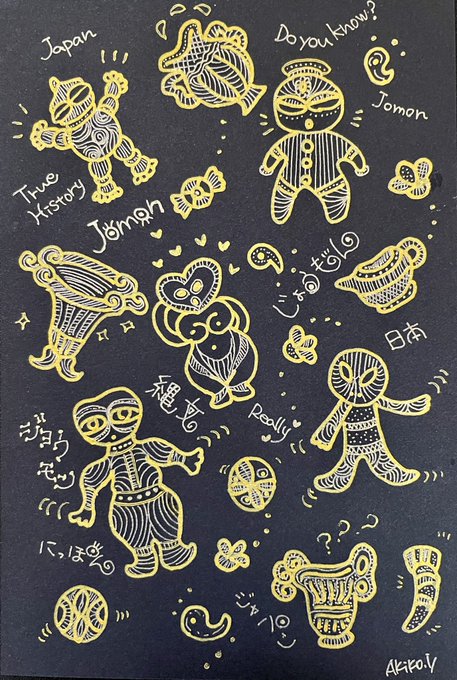 Japan
Do you know?
Jomon
True
History
Jomon
じょおもん
日本
縄文
Really
ジョウ
モン
にっぽん
???
ジャパン
Akiko.Y